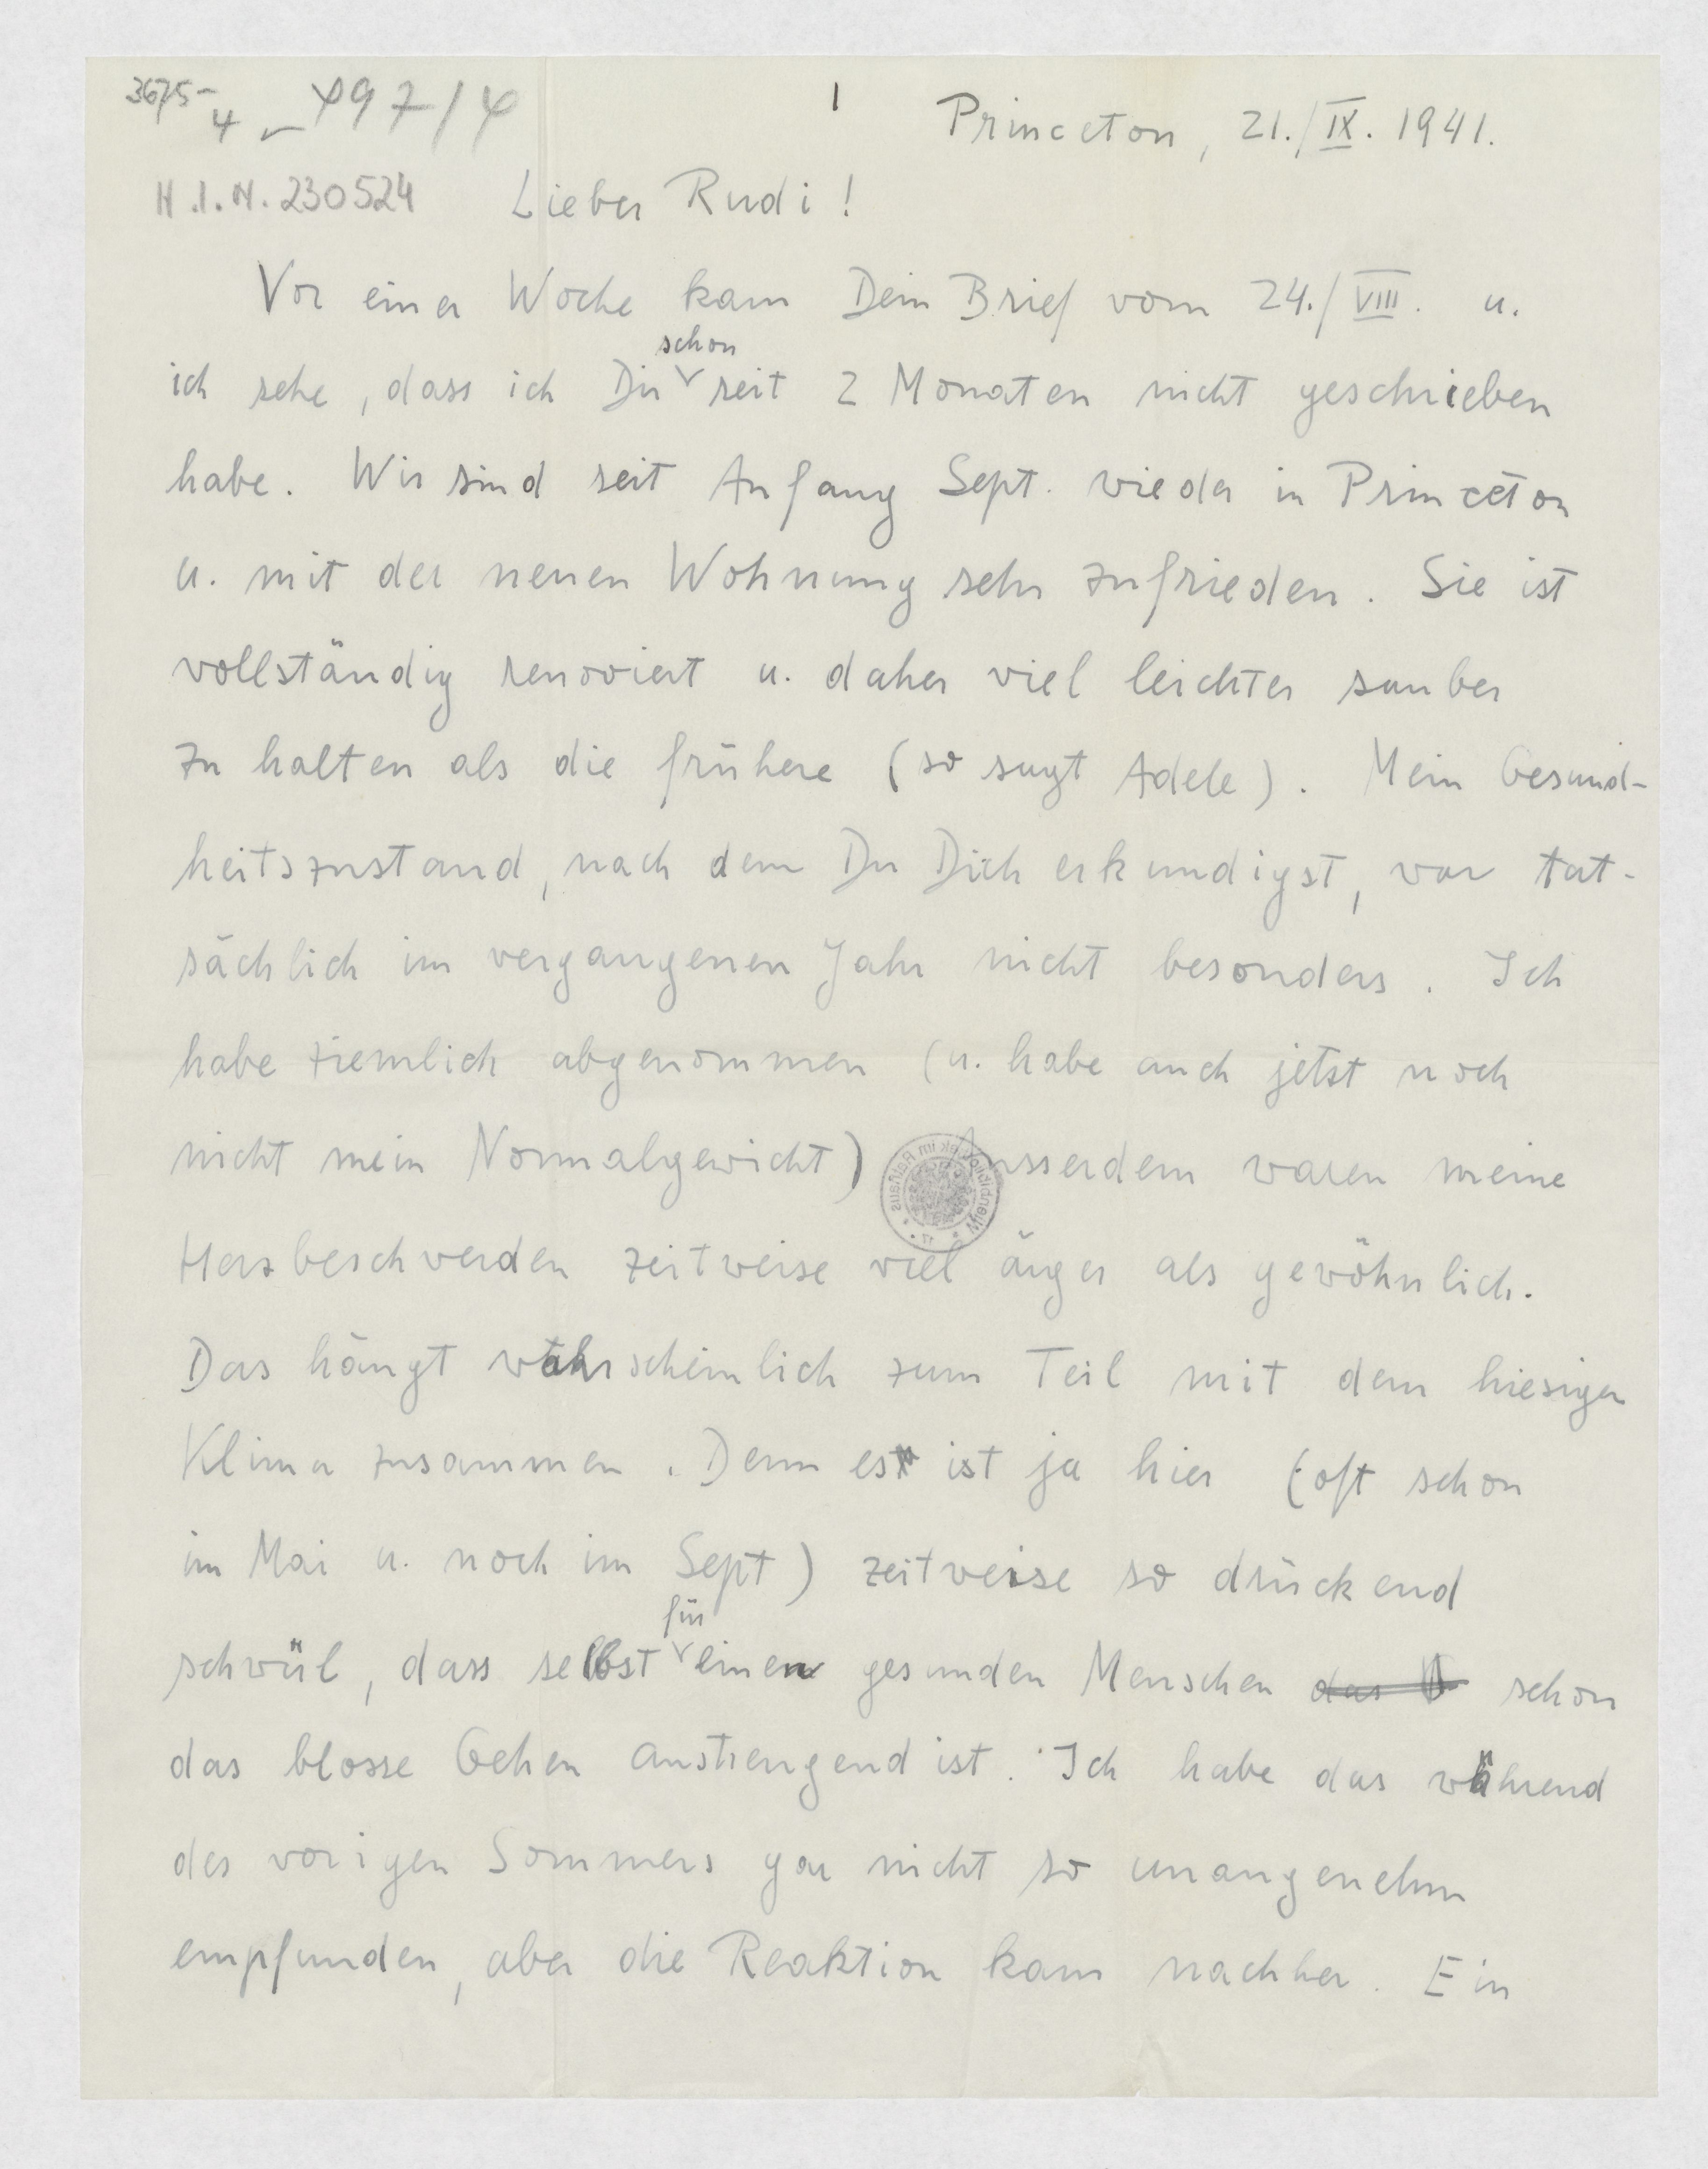 3675-
4 – 497/4
1
Princeton, 21./IX. 1941.
H.I.N. 230524
Lieber Rudi!
Vor einer Woche kam Dein Brief vom 24./VIII. u.
schon
ich sehe, dass ich Dir seit 2 Monaten nicht geschrieben
habe. Wir sind seit Anfang Sept. wieder in Princeton
u. mit der neuen Wohnung sehr zufrieden. Sie ist
vollständig renoviert u. daher viel leichter sauber
zu halten als die frühere (so sagt Adele). Mein Gesund-
heitszustand, nach dem Du Dich erkundigst, war tat-
sächlich im vergangenen Jahr nicht besonders. Ich
habe ziemlich abgenommen (u. habe auch jetzt noch
nicht mein Normalgewicht) Ausserdem waren meine
Herzbeschwerden zeitweise viel ärger als gewöhnlich.
Das hängt wahrscheinlich zum Teil mit dem hiesigen
Klima zusammen. Denn es ist ja hier (oft schon
im Mai u. noch im Sept) zeitweise so drückend
für
schwül, dass selbst einen gesunden Menschen das schon
das blosse Gehen anstrengend ist. Ich habe das während
des vorigen Sommers gar nicht so unangenehm
empfunden, aber die Reaktion kam nachher. Ein